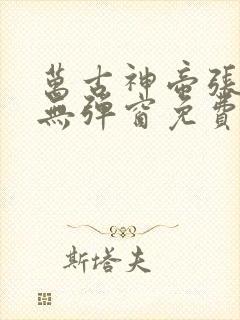 萬古神帝張
無彈窗免費
斯塔夫